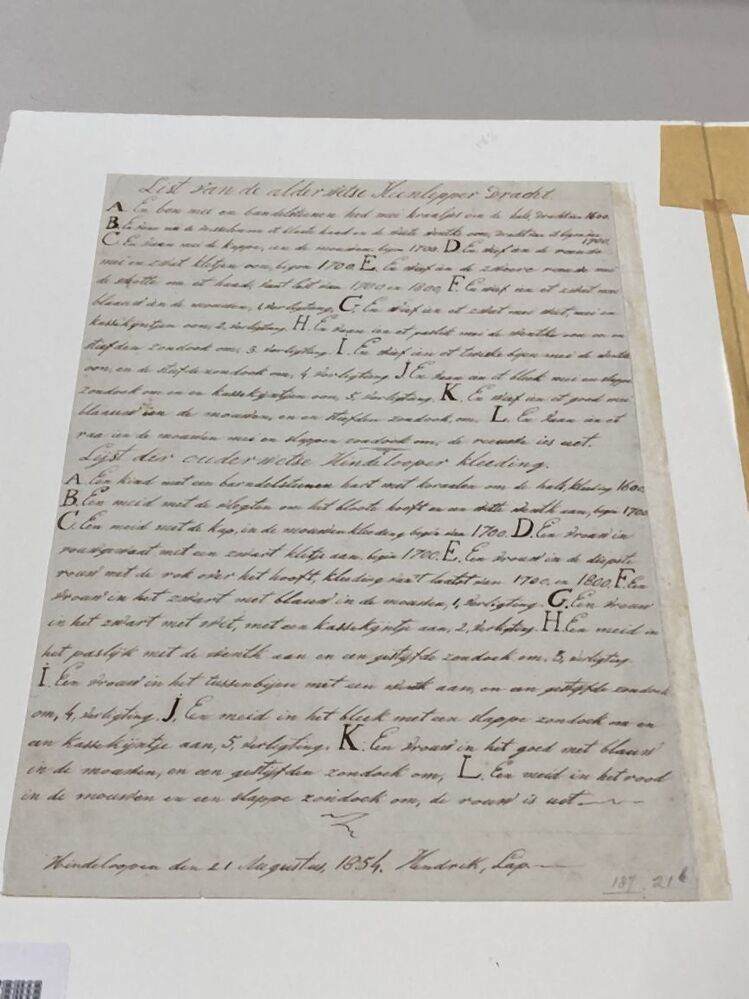 List van de alderwetse Heinlepper Dracht.
A. En ben mei en bandelstienen hed mei kraaltjes in de hals, dracht an 1600.
B. En faan mei de bloote haad en de witte wentke oon, dracht an it begin fan 1700.
C. En faan mei de kappe, ien de mouwen, begin 1700. D. En wief ien de rouwe
mei en zwat kletjen oon, begin 1700. E. En wief ien de zwoere rouwe mei
de schotte om et haad, laat fan 1700 en 1800. F. En wief ien et zwat mei
blaauw ien de mouwen, 1, verligting. G. En wief ien et zwat mei wiet, mei en
kassekijntjen oon, 2, verligting. H. En faan ien et paslik mei de wentke oon en en
stiefden zondoek om, 3, verligting. I. En wief ien et twiske byen mei de wentke
oon, en de stiefde zondoek om, 4, verligting. J. En faan ien it bleek mei en slappe
zondoek om en en kassekijntjen oon, 5, verligting. K. En wief ien et goed mei
blaauw ien de mouwen, en en stiefden zondoek om. L. En faan ien et
raa ien de mouwen mei en slappen zondoek om, de rouwe ies uet.
Lijst der ouderwetse Hindelooper kleeding.
A. Een kind met een barndelsteenen hart met koraalen om de hals, kleeding 1600.
B. Een meid met de vlegten om het bloote hooft en een witte wentk aan, begin 1700.
C. Een meid met de kap, in de mouwen kleeding begin van 1700. D. Een vrouw in
rouwgewaat met een zwart kletje aan, begin 1700. E. Een vrouw in de diepste
rouw met de rok over het hooft, kleeding laatst van 1700, en 1800. F. Een
vrouw in het zwart met blauw in de mouwen, 1, verligting. G. Een vrouw
in het zwart met wiet, met een kassekijntje aan, 2, verligting. H. Een meid in
het paslijk met de wentk aan en een gestijfde zondoek om, 3, verligting.
I. Een vrouw in het tussenbijen met een wentk aan, en een gestijfde zondoek
om, 4, verligting. J. Een meid in het bleek met een slappe zondoek om en
een kassekijntje aan, 5, verligting. K. Een vrouw in het goed met blauw
in de mouwen, en een gestijfden zondoek om, L. Een meid in het rood
in de mouwen en een slappe zondoek om, de rouw is uet
Hindeloopen den 21 Augustus, 1854. Hendrik, Lap
187. 21 b